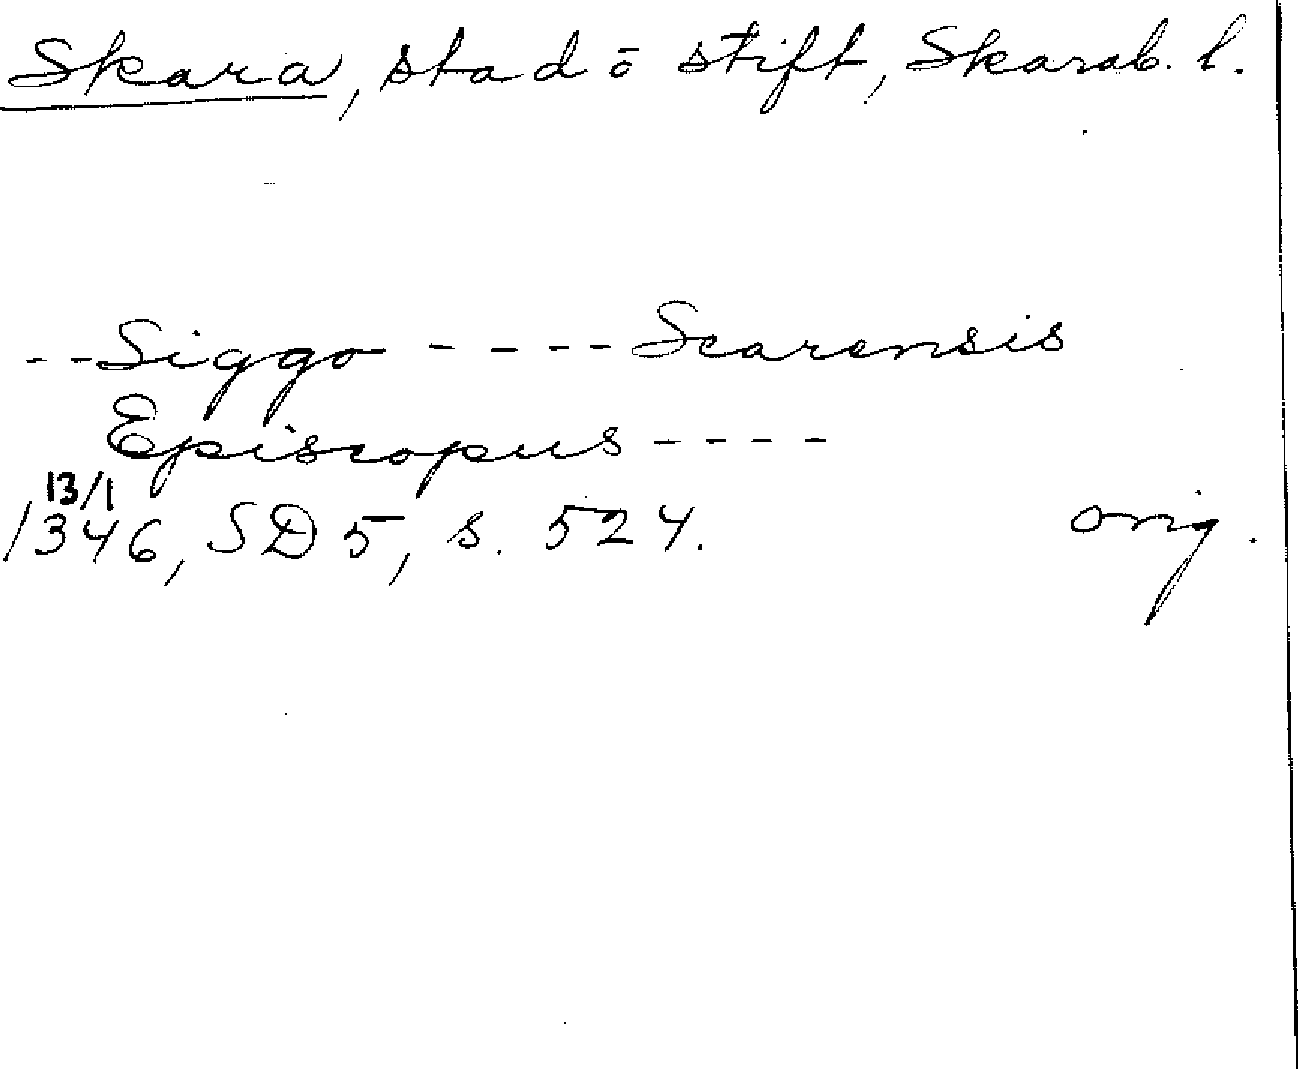 Skara, stad o stift, Skarab. l.
--Siggo ----Scarensis
Episcopus----
13/1
1346, SD 5, s. 524. orig.